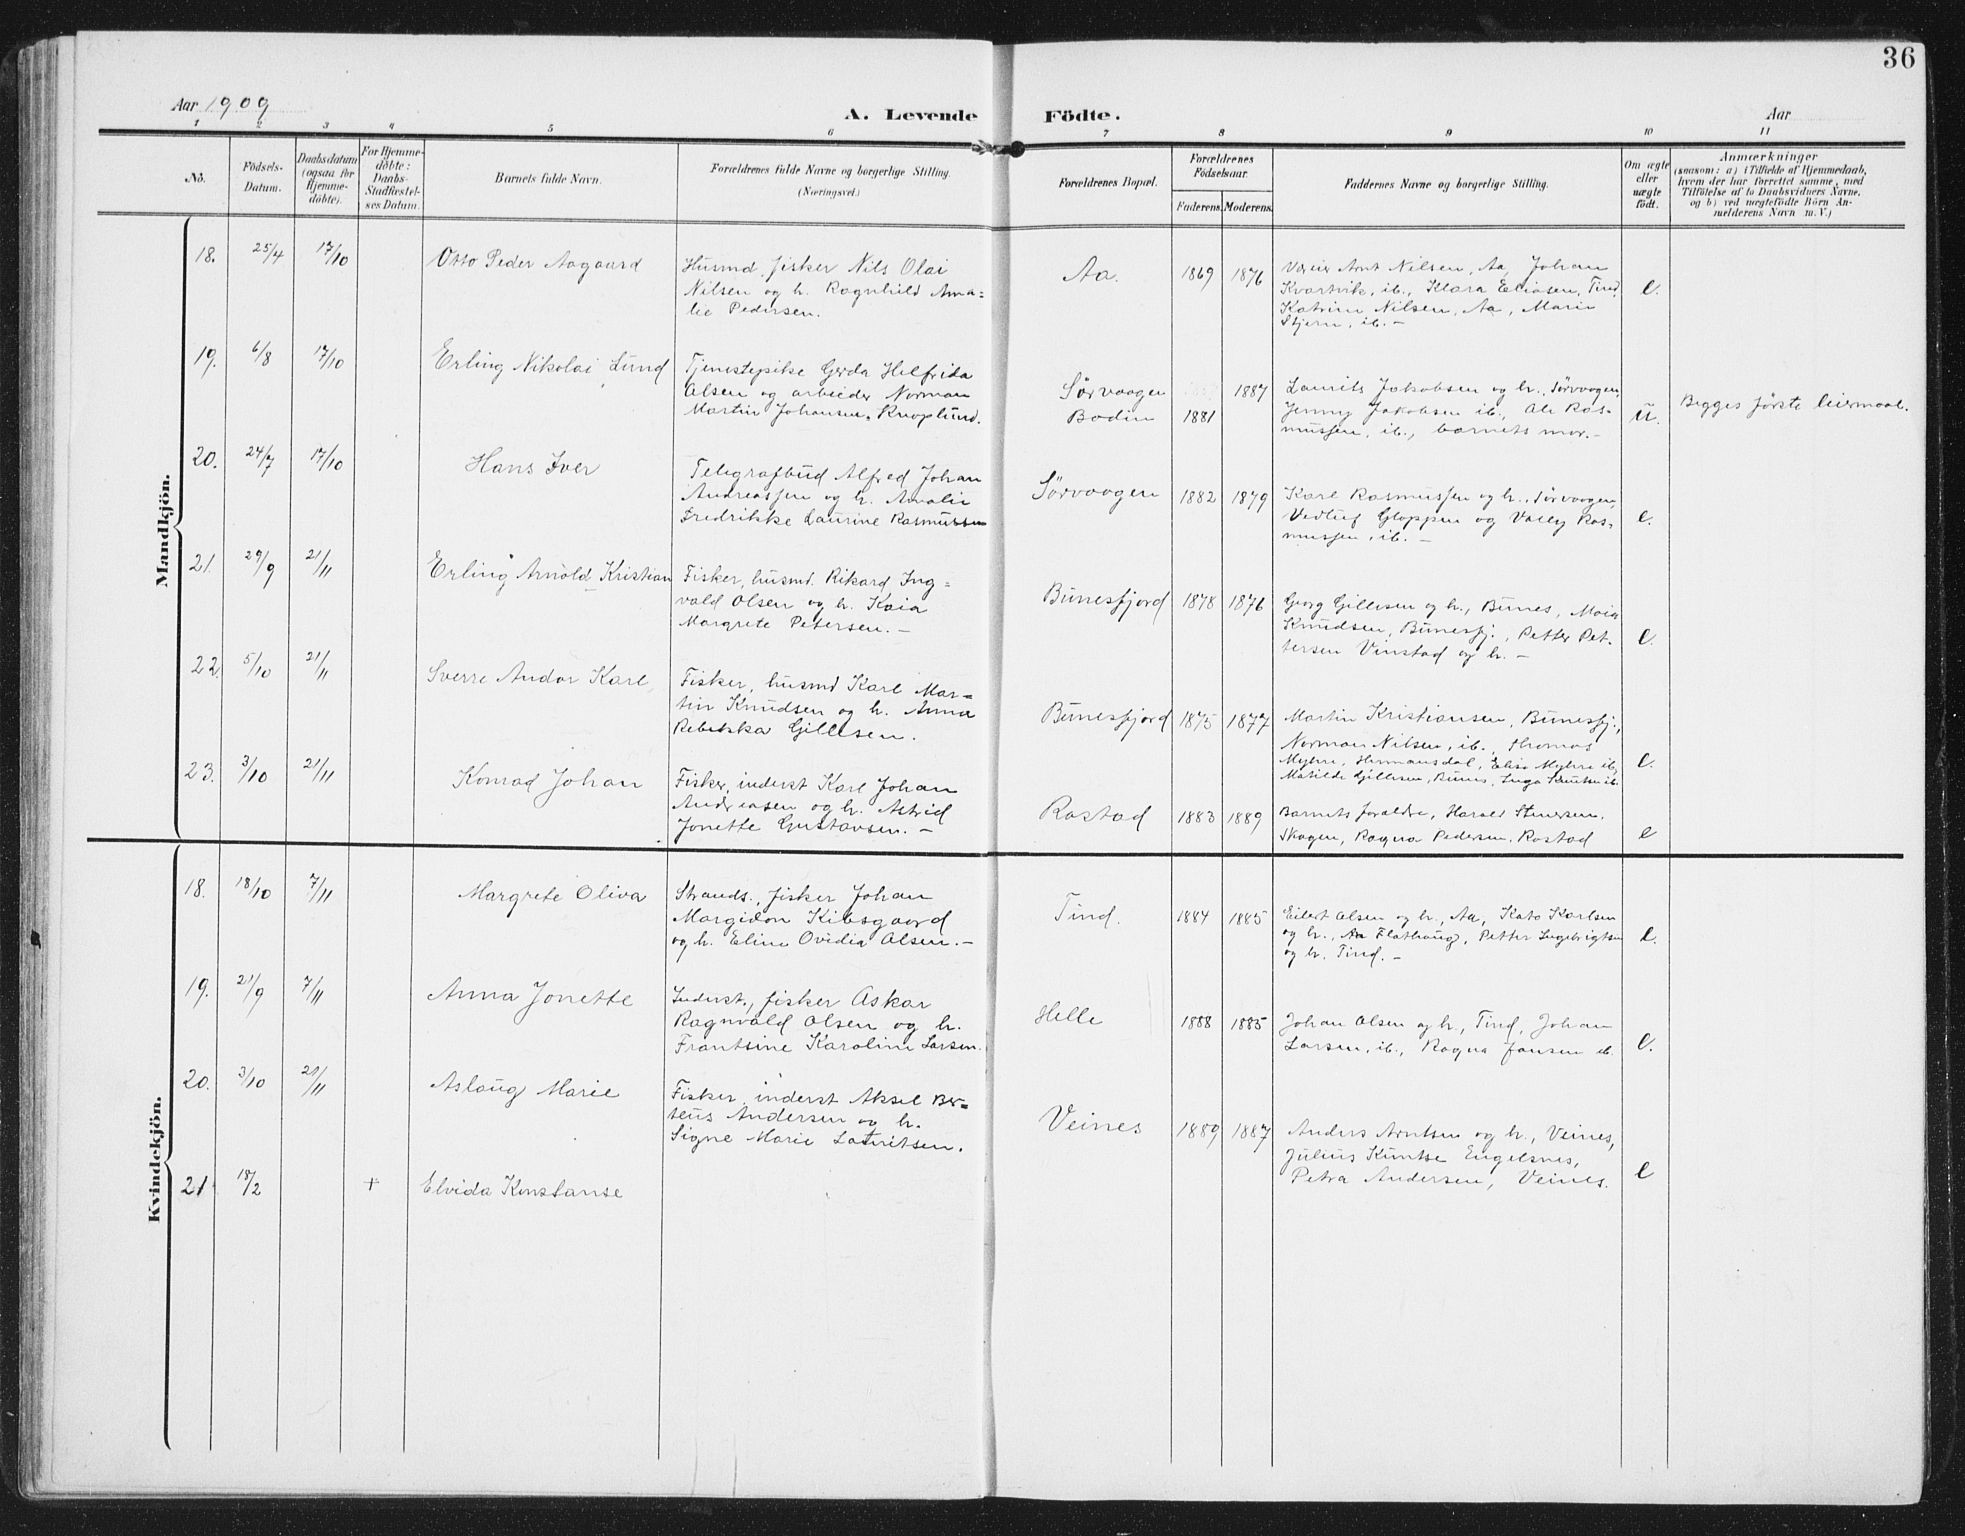 36
Aar 1909
A. Levende
Födte.
Aar
1 2 3 4 5 6 7 8 9 10 11
No.
Födsels-
Datum.
Daabsdatum
(ogsaa for
Hjemme-
döbte).
For Hjemme-
döbte:
Daabs-
Stadfæstel-
ses Datum.
Barnets fulde Navn.
Forældrenes fulde Navne og borgerlige Stilling.
(Næringsvei.)
Forældrenes Bopæl.
Forældrenes
Födselsaar.
Faderens. Moderens.
Faddernes Navne og borgerlige Stilling.
Om ægte
eller
uægte
födt.
Anmærkninger
(saasom: a) i Tilfælde af Hjemmedaab,
hvem der har forrettet samme, med
Tilföielse af to Daabsvidners Navne,
og b) ved uægtefödte Börn An-
melderens Navn m. V.)
Mandkjön.
18. 25/4 17/10 Otto Peder Aagaard
Husmd. fisker Nils Olai
Nilsen og h. Ragnhild Ama-
lie Pedersen.
Aa. 1869 1876
Væier Arnt Nilsen, Aa, Johan
Kvartvik, ib., Klara Eliasen, Tind,
Katrine Nilsen, Aa, Marie
Stjern, ib. -
e.
19. 6/8 17/10 Erling Nikolai Lund
Tjenestepike Gerda Helfrida
Olsen og arbeider Norman
Martin Johansen Knoplund.
Sørvaagen 1887
Bodin 1881
Laurits Jakobsen og h., Sørvaagen,
Jenny Jakobsen ib., Ole Ras-
mussen, ib., barnets mor. -
u.
Begges første leiermaal.
20. 24/7 17/10 Hans Iver
Telegrafbud Alfred Johan
Andreassen og h. Amalie
Fredrikke Laurine Rasmussen
Sørvaagen 1882 1879
Karl Rasmussen og h., Sørvaagen,
Vedluf Gloppen og Valey Ras-
mussen, ib. -
e.
21. 29/9 21/11 Erling Arnold Kristian
Fisker, husmd. Rikard Ing-
vald Olsen og h. Kaia
Margrete Petersen. -
Bunesfjord 1878 1876
Georg Gillesen og h., Bunes, Maia
Knudsen, Bunesfj., Petter Pet-
tersen Vinstad og h. -
e.
22. 5/10 21/11 Sverre Andor Karl
Fisker, husmd Karl Mar-
tin Knudsen og h. Anna
Rebekka Gillesen.
Bunesfjord 1875 1877
Martin Kristiansen, Bunesfj.,
Norman Nilsen, ib., Thomas
Myhre, Hermansdal, Elise Myhre ib,
Matilde Gillesen, Bunes, Inga Knutsen ib.
e.
23. 3/10 21/11 Konrad Johan
Fisker, inderst Karl Johan
Andreasen og h. Astrid
Jonette Gustavsen. -
Rostad 1883 1889
Barnets forældre, Harald Stenersen.
Skagen, Ragna Pedersen. Rostad
e
Kvindekjön.
18. 18/10 7/11 Margrete Oliva
Strands., fisker Johan
Margidon Kibsgaard
og h. Eline Ovidia Olsen. -
Tind. 1884 1885
Eilert Olsen og h., Aa, Kato Karlsen
og h., Flathaug, Petter Ingebrigtsen
og h. Tind. -
e.
19. 21/9 7/11 Anna Jonette
Inderst., fisker Askar
Ragnvald Olsen og h.
Frantsine Karoline Larsen.
Helle 1888 1885
Johan Olsen og h., Tind, Johan
Larsen, ib., Ragna Jansen ib.
e.
20. 3/10 21/11 Aslaug Marie
Fisker, inderst Aksel Ber-
teus Andersen og h.
Signe Marie Lauritsen.
Veines 1889 1887
Anders Arntsen og h., Veines,
Julius Kuntse Engelsnes,
Petra Andersen, Veines.
e
21 18/2 + Elvida Konstanse